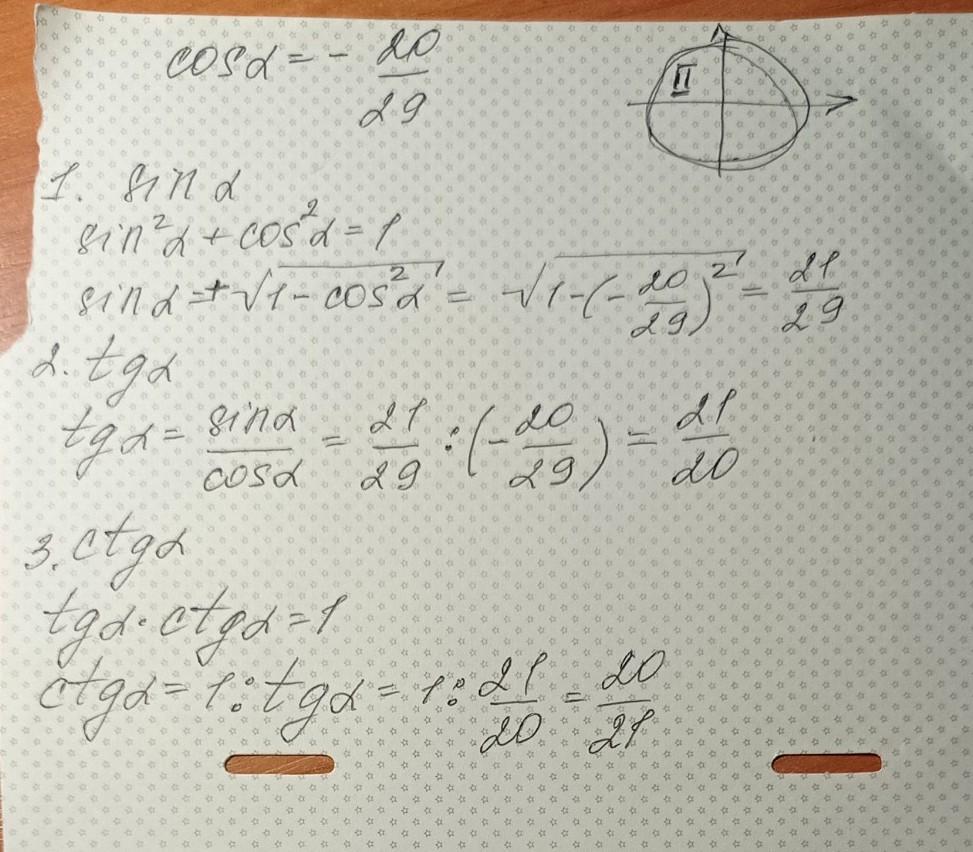 cosα = - 20/29
II
1. sin α
sin²α + cos²α = 1
sin α = +√(1 - cos²α) = √(1 - (-20/29)²) = 21/29
2. tgα
tgα = sinα/cosα = 21/29 : (-20/29) = 21/20
3. ctgα
tgα · ctgα = 1
ctgα = 1 : tgα = 1 : 21/20 = 20/21